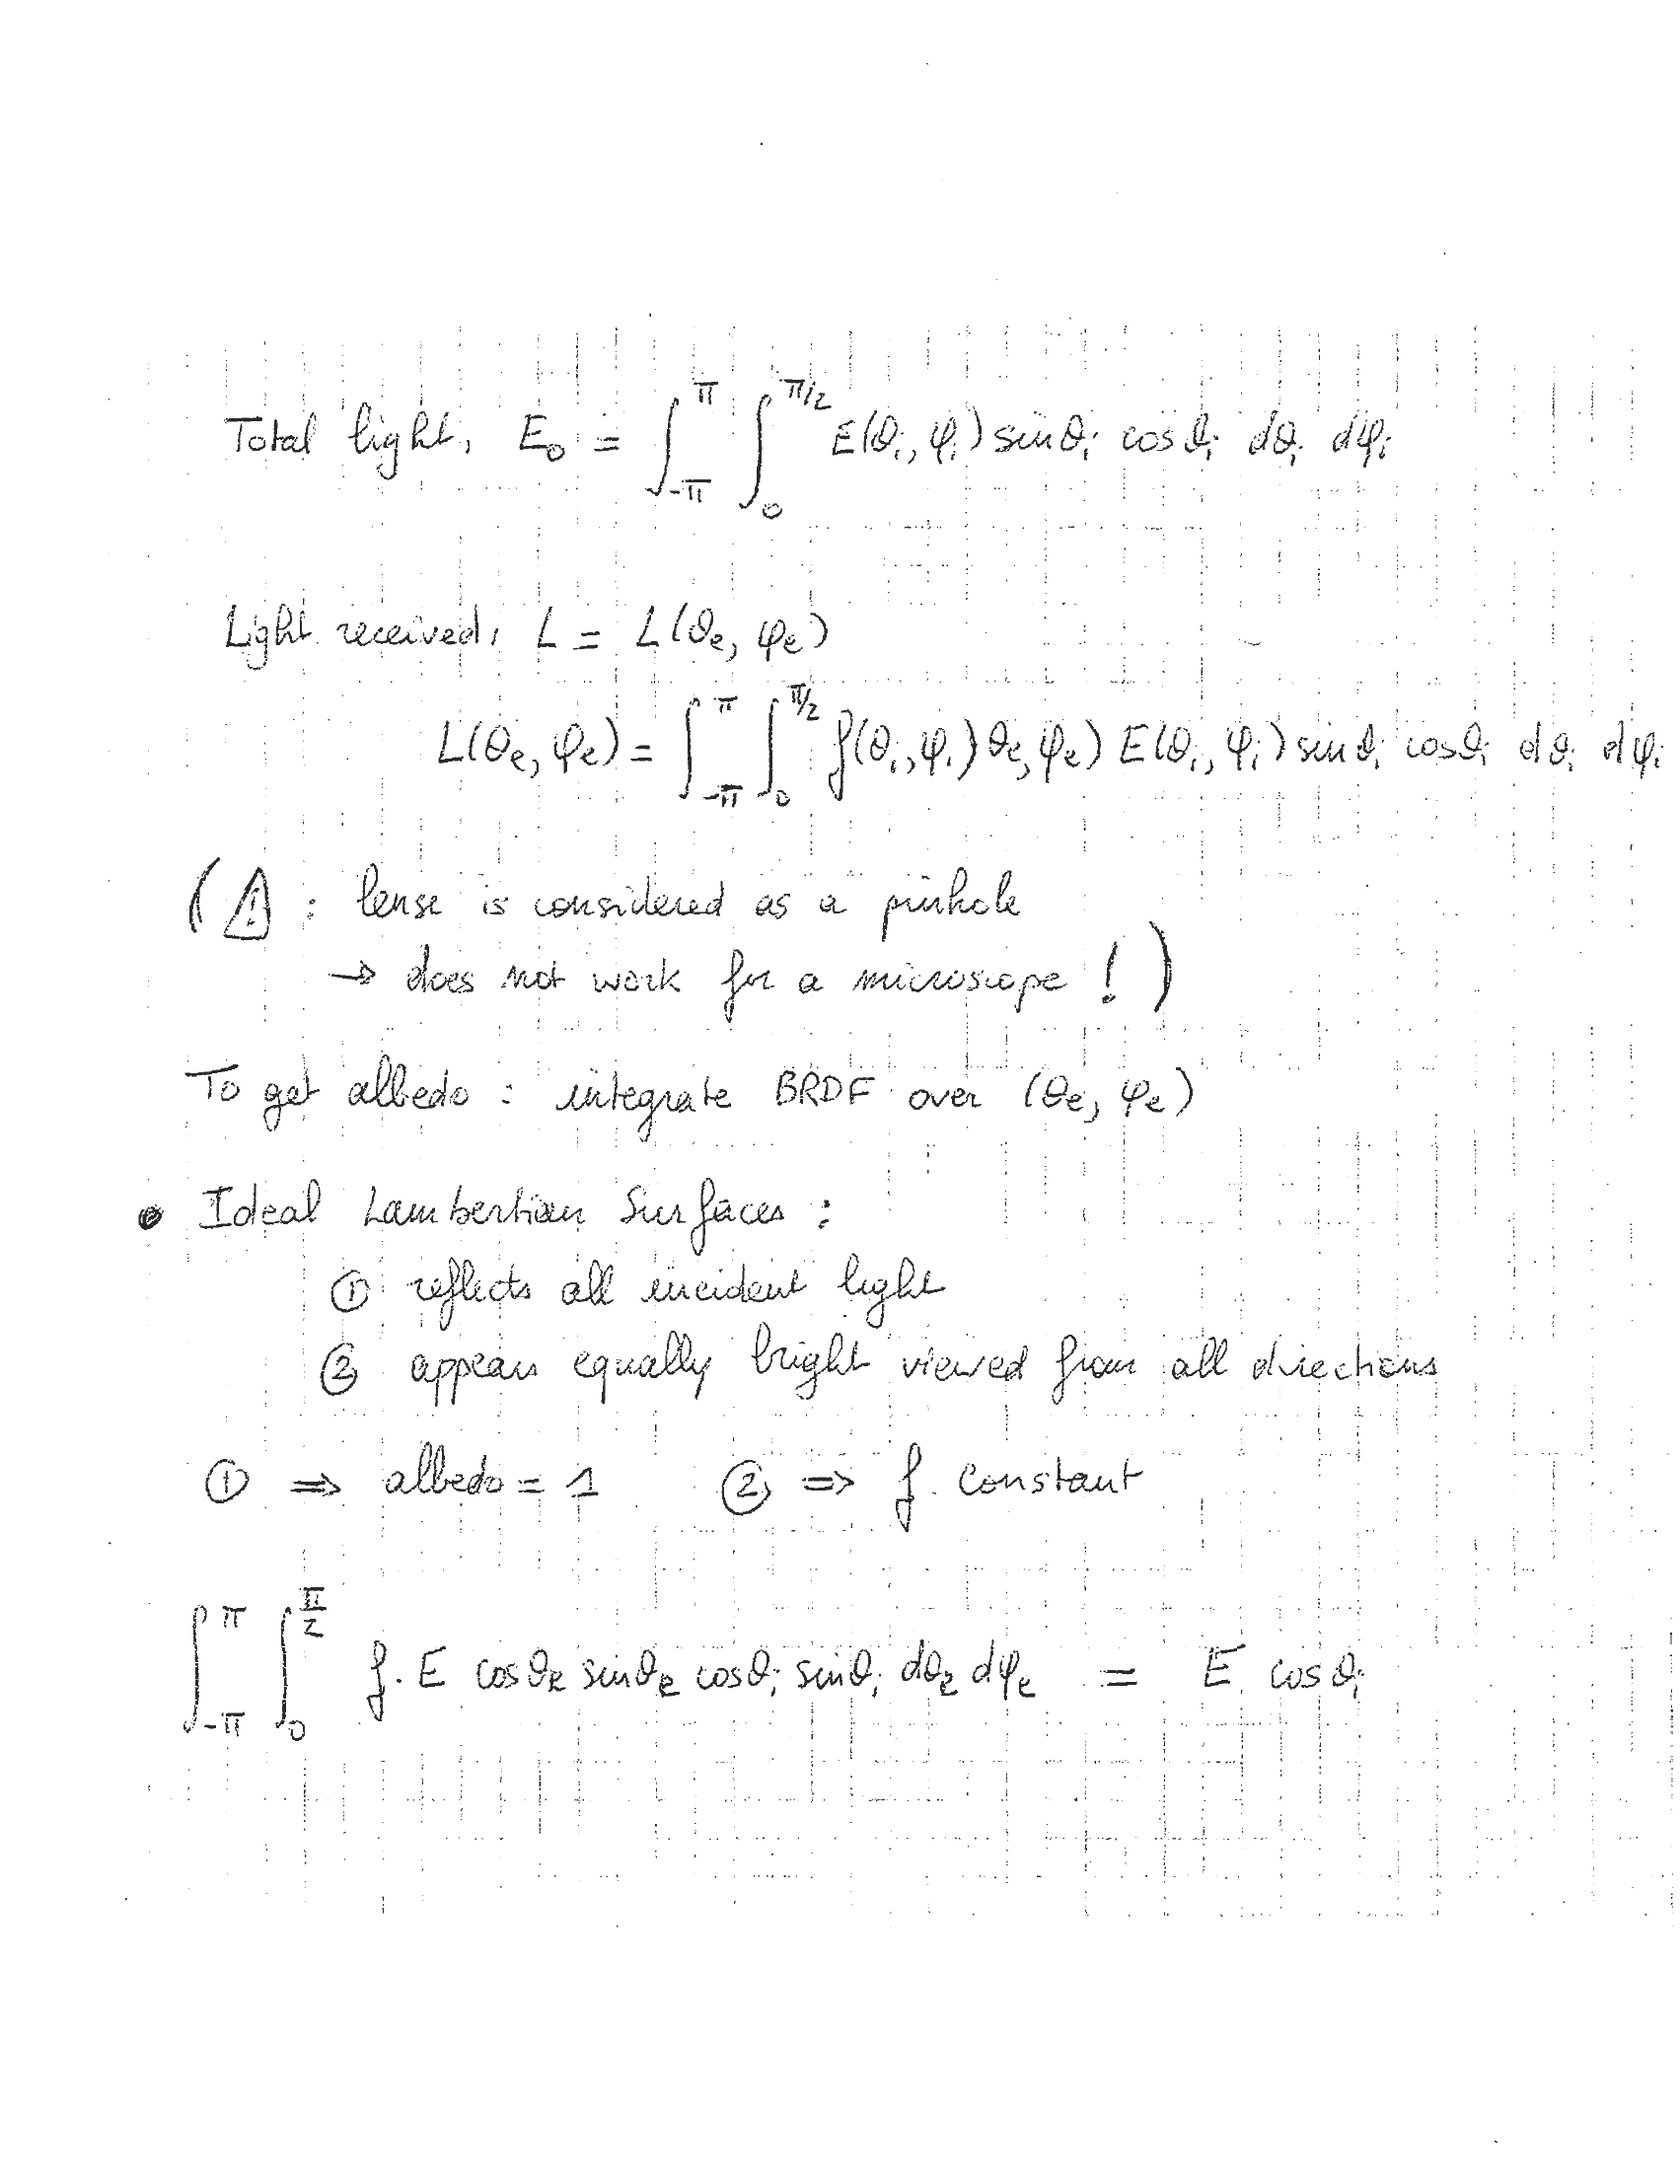 Total light, E₀ = ∫_{-π}^{π} ∫_{0}^{π/2} E(θᵢ, φᵢ) sin θᵢ cos θᵢ dθᵢ dφᵢ
Light received, L = L(θe, φe)
L(θe, φe) = ∫_{-π}^{π} ∫_{0}^{π/2} f(θᵢ, φᵢ, θe, φe) E(θᵢ, φᵢ) sin θᵢ cos θᵢ dθᵢ dφᵢ
(⚠ : lense is considered as a pinhole
→ does not work for a microscope !)
To get albedo : integrate BRDF over (θe, φe)
• Ideal Lambertian Surfaces :
① reflects all incident light
② appears equally bright viewed from all directions
① ⇒ albedo = 1 ② ⇒ f constant
∫_{-π}^{π} ∫_{0}^{π/2} f. E cos θe sin θe cos θᵢ sin θᵢ dθe dφe = E cos θᵢ